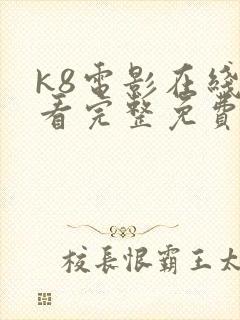 k8電影在綫
看完整免費
校長恨霸王太